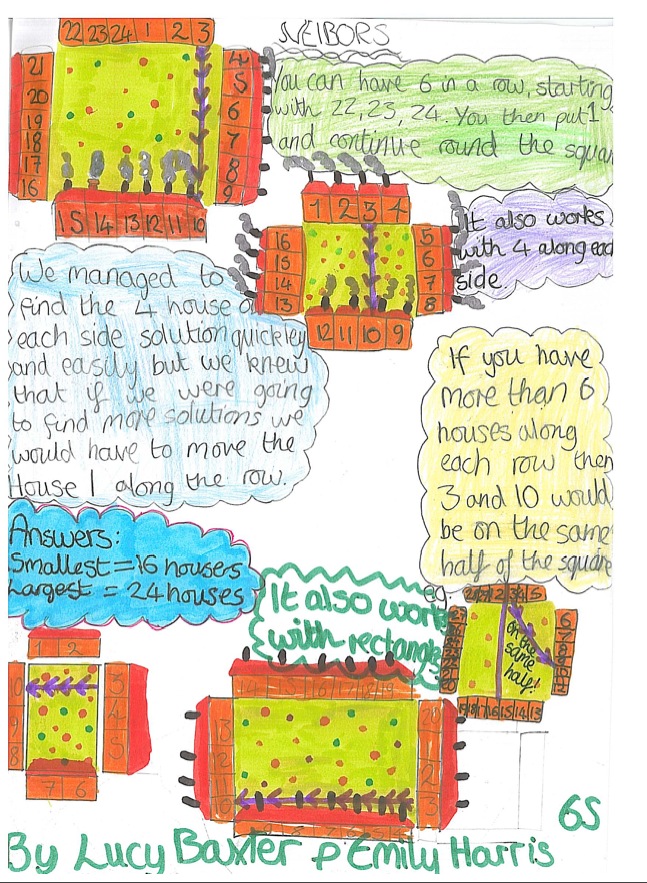 NEIBORS
22 23 24 1 2 3
21
20
19
18
17
16
4
5
6
7
8
9
15 14 13 12 11 10
You can have 6 in a row, starting
with 22, 23, 24. You then put 1
and continue round the squar
1 2 3 4
16
15
14
13
5
6
7
8
12 11 10 9
It also works
with 4 along each
side.
We managed to
find the 4 house on
each side solution quickley
and easily but we knew
that if we were going
to find more solutions we
would have to move the
House 1 along the row.
If you have
more than 6
houses along
each row then
3 and 10 would
be on the same
half of the square
Answers:
Smallest = 16 housers
Largest = 24 houses
It also work
with rectangle
eg.
1 2 3 4 5
6
7
8
9
on the
same
half!
15 14 13
1 2
10
9
8
3
4
5
7 6
14 15 16 17 18 19
13
12
10
20
2
3
9 8 7 6 5 4
6S
By Lucy Baxter & Emily Harris